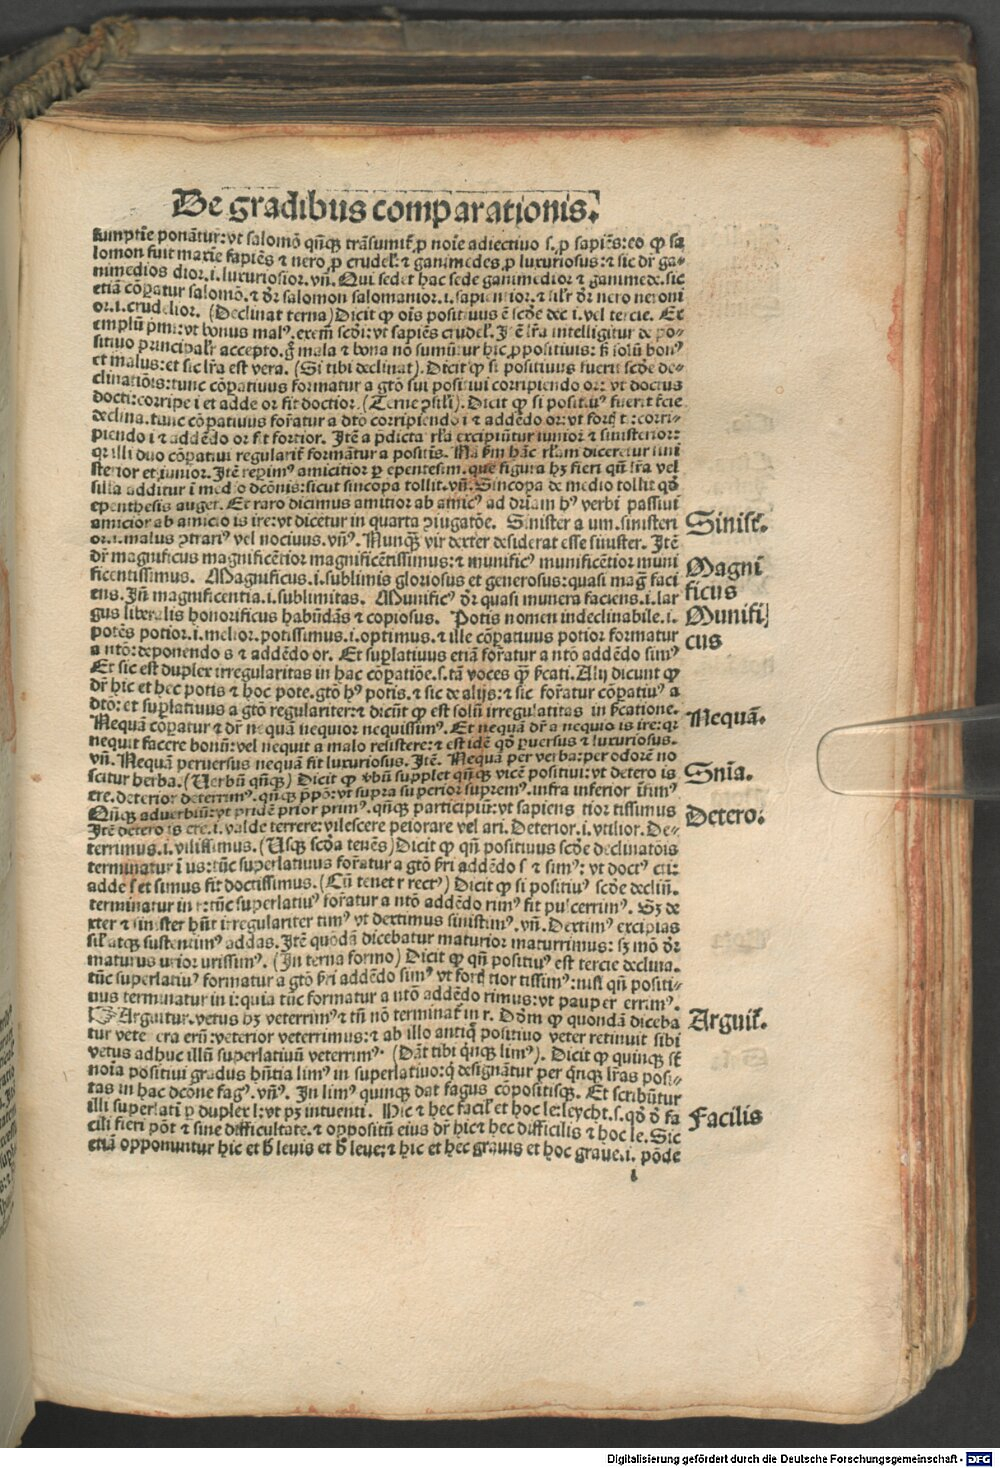 De gradibus comparationis.
sumptie ponãtur: vt salomõ qñqꝫ trãsumit̃ ꝓ noĩe adiectiuo s. ꝓ sapiẽs: eo ꝙ sa
lomon fuit maxĩe sapiẽs ⁊ nero ꝓ crudel̃. ⁊ ganimedes ꝓ luxuriosus: ⁊ sic dr̃ ga-
nimedios dior. i. luxuriosior. vñ. Qui sedet hac sede ganimedior ⁊ ganimede. sic
etiã cõpatur salomõ. ⁊ dr̃ salomon salomanior. i. sapientior. ⁊ sil̃r dr̃ nero neroni
or. i. crudelior. (Declinat terna) Dicit ꝙ oĩs positiuus ẽ scđe dec i. vel tercie. Ex
emplũ pmi: vt bonus malꝰ. exem̃ scđi: vt sapiẽs crudel̃. Iẽ lr̃a intelligitur de po-
sitiuo principal̃r accepto. ḡ mala ⁊ bona nõ sumũtur hic ꝓ positiuis: ẜ solũ bonꝰ
et malus: et sic lr̃a est vera. (Si tibi declinat). Dicit ꝙ si positiuus fuerit scđe de-
clinatiõis: tunc cõpatiuus formatur a gtõ sui positiui corripiendo or: vt doctus
docti: corripe i et adde or fit doctior. (Terne ꝯsil̃i). Dicit ꝙ si positiuꝰ fuerit t̃cie
declina. tunc cõpatiuus for̃atur a dtõ corripiendo i ⁊ addẽdo or: vt fort̃ ti: corri-
piendo i ⁊ addẽdo or fit fortior. Itẽ a p̃dicta rl̃a excipiũtur iunior ⁊ sinisterior:
qr illi duo cõpatiui regularit̃ formãtur a positis. Nã ẜm hãc rl̃am diceretur iuni
sterior et iunior. Itẽ repimꝰ amicitior p epentesim. que figura hꝫ fieri qñ lr̃a vel
silla additur i medio dcõnis: sicut sincopa tollit. vñ. Sincopa de medio tollit qđ
epenthesis auget. Et raro dicimus amitior ab amicꝰ ad dr̃iam hꝰ verbi passiui
amicior ab amicio is ire: vt dicetur in quarta ꝯiugatõe. Sinister a um. sinisteri
or. i. malus ꝯtrariꝰ vel nociuus. vñꝰ. Nunqꝫ vir dexter desiderat esse sinister. Itẽ
dr̃ magnificus magnificẽtior magnificẽtissimus: ⁊ munificꝰ munificẽtior muni
ficentissimus. Magnificus. i. sublimis gloriosus et generosus: quasi mag̃ faci
ens. Iñ magnificentia. i. sublimitas. Munificꝰ dr̃ quasi munera faciens. i. lar
gus liberalis honorificus habũdãs ⁊ copiosus. Potis nomen indeclinabile. i.
potẽs potior. i. melior. potissimus. i. optimus. ⁊ ille cõpatiuus potior formatur
a ntõ: deponendo s ⁊ addẽdo or. Et supl̃atiuus etiã for̃atur a ntõ addẽdo simꝰ
Et sic est duplex irregularitas in hac cõpatiõe. s. tã voces qꝫ ẜcati. Alij dicunt ꝙ
dr̃ hic et hec potis ⁊ hoc pote. gtõ hꝰ potis. ⁊ sic de alijs: ⁊ sic for̃atur cõpatiuꝰ a
dtõ: et supl̃atiuus a gtõ regulariter: ⁊ dicũt ꝙ est solũ irregulatitas in ẜcatione.
Nequã cõpatur ⁊ dr̃ nequã nequior nequissimꝰ. Et nequã dr̃ a nequio is ire: qr
nequit facere bonũ: vel nequit a malo resistere: ⁊ est idẽ qđ puersus ⁊ luxuriosus.
vñ. Nequã peruersus nequã fit luxuriosus. Itẽ. Nequã per verba: per odorẽ no
scitur herba. (Uerbũ qñqꝫ) Dicit ꝙ vbũ supplet qñqꝫ vicẽ positiui: vt detero is
ere. deterior deterrimꝰ. qñqꝫ p̃põ: vt supra superior supremꝰ. infra inferior ĩfimꝰ
Qñqꝫ aduerbiũ: vt pridẽ prior primꝰ. qñqꝫ participiũ: vt sapiens tior tissimus
Itẽ detero is ere. i. valde terrere: vilescere peiorare vel ari. Deterior. i. vtilior. De-
terrimus. i. vilissimus. (Usqꝫ scđa tenẽs) Dicit ꝙ qñ positiuus scđe declinatõis
terminatur i us: tũc superlatiuus for̃atur a gtõ ẜri addẽdo s ⁊ simꝰ: vt doctꝰ cti:
adde s et simus fit doctissimus. (Cũ tenet r rectꝰ) Dicit ꝙ si positiuꝰ scđe declĩn.
terminatur in r: tũc superlatiuꝰ for̃atur a ntõ addẽdo rimꝰ fit pulcerrimꝰ. Sꝫ de
xter ⁊ sinister hñt irregulariter timꝰ vt dextimus sinistimꝰ. vñ. Dextimꝰ excipias
sil̃ atqꝫ sustentimꝰ addas. Itẽ quõdã dicebatur maturior maturrimus: sꝫ mõ dr̃
maturus urior urissimꝰ. (In terna formo) Dicit ꝙ qñ positiuꝰ est tercie declina.
tũc superlatiuꝰ formatur a gtõ ẜri addẽdo simꝰ vt fort̃ tior tissimꝰ: nisi qñ positi-
uus terminatur in r: quia tũc formatur a ntõ addẽdo rimus: vt pauper errimꝰ.
Arguitur. vetus hꝫ veterrimꝰ ⁊ tñ nõ terminat̃ in r. Dõm ꝙ quondã diceba
tur vete era erũ: veterior veterrimus: ⁊ ab illo antiq̃ positiuo veter retinuit sibi
vetus adhuc illũ superlatiuũ veterrimꝰ. (Dãt tibi q̃nqꝫ limꝰ). Dicit ꝙ quinqꝫ s̃t
noĩa positiui gradus hñtia limꝰ in superlatiuo: q̃ designãtur per q̃nqꝫ lr̃as posi-
tas in hac dcõne fagꝰ. vñꝰ. In limꝰ quinqꝫ dat fagus cõpositisqꝫ. Et scribũtur
illi superlati p duplex l: vt pꝫ intuenti. Hic ⁊ hec facil̃ et hoc le: leycht. s. qđ đ fa
cili fieri põt ⁊ sine difficultate. ⁊ oppositũ eius dr̃ hic ⁊ hec difficilis ⁊ hoc le. Sic
etiã opponuntur hic et ḣ leuis et ḣ leue: ⁊ hic et hec grauis et hoc graue. i. põde
i
Sinist̃.
Magni
ficus
Munifi
cus
Nequã.
Snĩa.
Detero:
Arguit̃.
Facilis
Digitalisierung gefördert durch die Deutsche Forschungsgemeinschaft - DFG